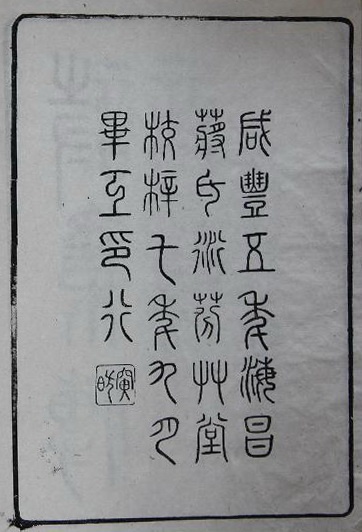 咸豐五年海昌
蔣氏衍芬艸堂
校梓七年九月
畢工印行
寅昉